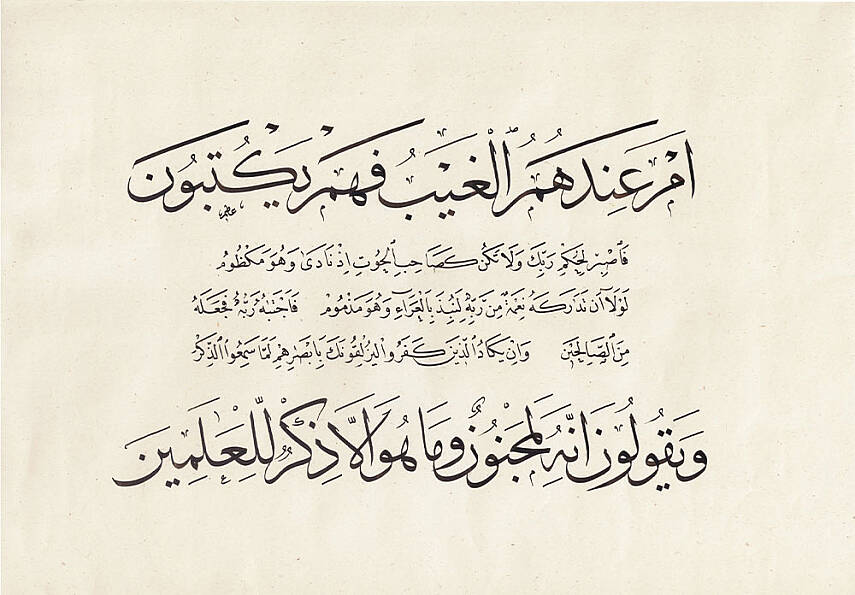 اَمْ عِنْدَهُمُ الْغَيْبُ فَهُمْ يَكْتُبُونَ
فَاصْبِرْ لِحُكْمِ رَبِّكَ وَلَا تَكُنْ كَصَاحِبِ الْحُوتِ اِذْ نَادٰى وَهُوَ مَكْظُومٌ
لَوْلَا اَنْ تَدَارَكَهُ نِعْمَةٌ مِنْ رَبِّهِ لَنُبِذَ بِالْعَرَاءِ وَهُوَ مَذْمُومٌ فَاجْتَبٰهُ رَبُّهُ فَجَعَلَهُ
مِنَ الصَّالِحِينَ وَاِنْ يَكَادُ الَّذِينَ كَفَرُوا لَيُزْلِقُونَكَ بِاَبْصَارِهِمْ لَمَّا سَمِعُوا الذِّكْرَ
وَيَقُولُونَ اِنَّهُ لَمَجْنُونٌ وَمَا هُوَ اِلَّا ذِكْرٌ لِلْعٰلَمِينَ